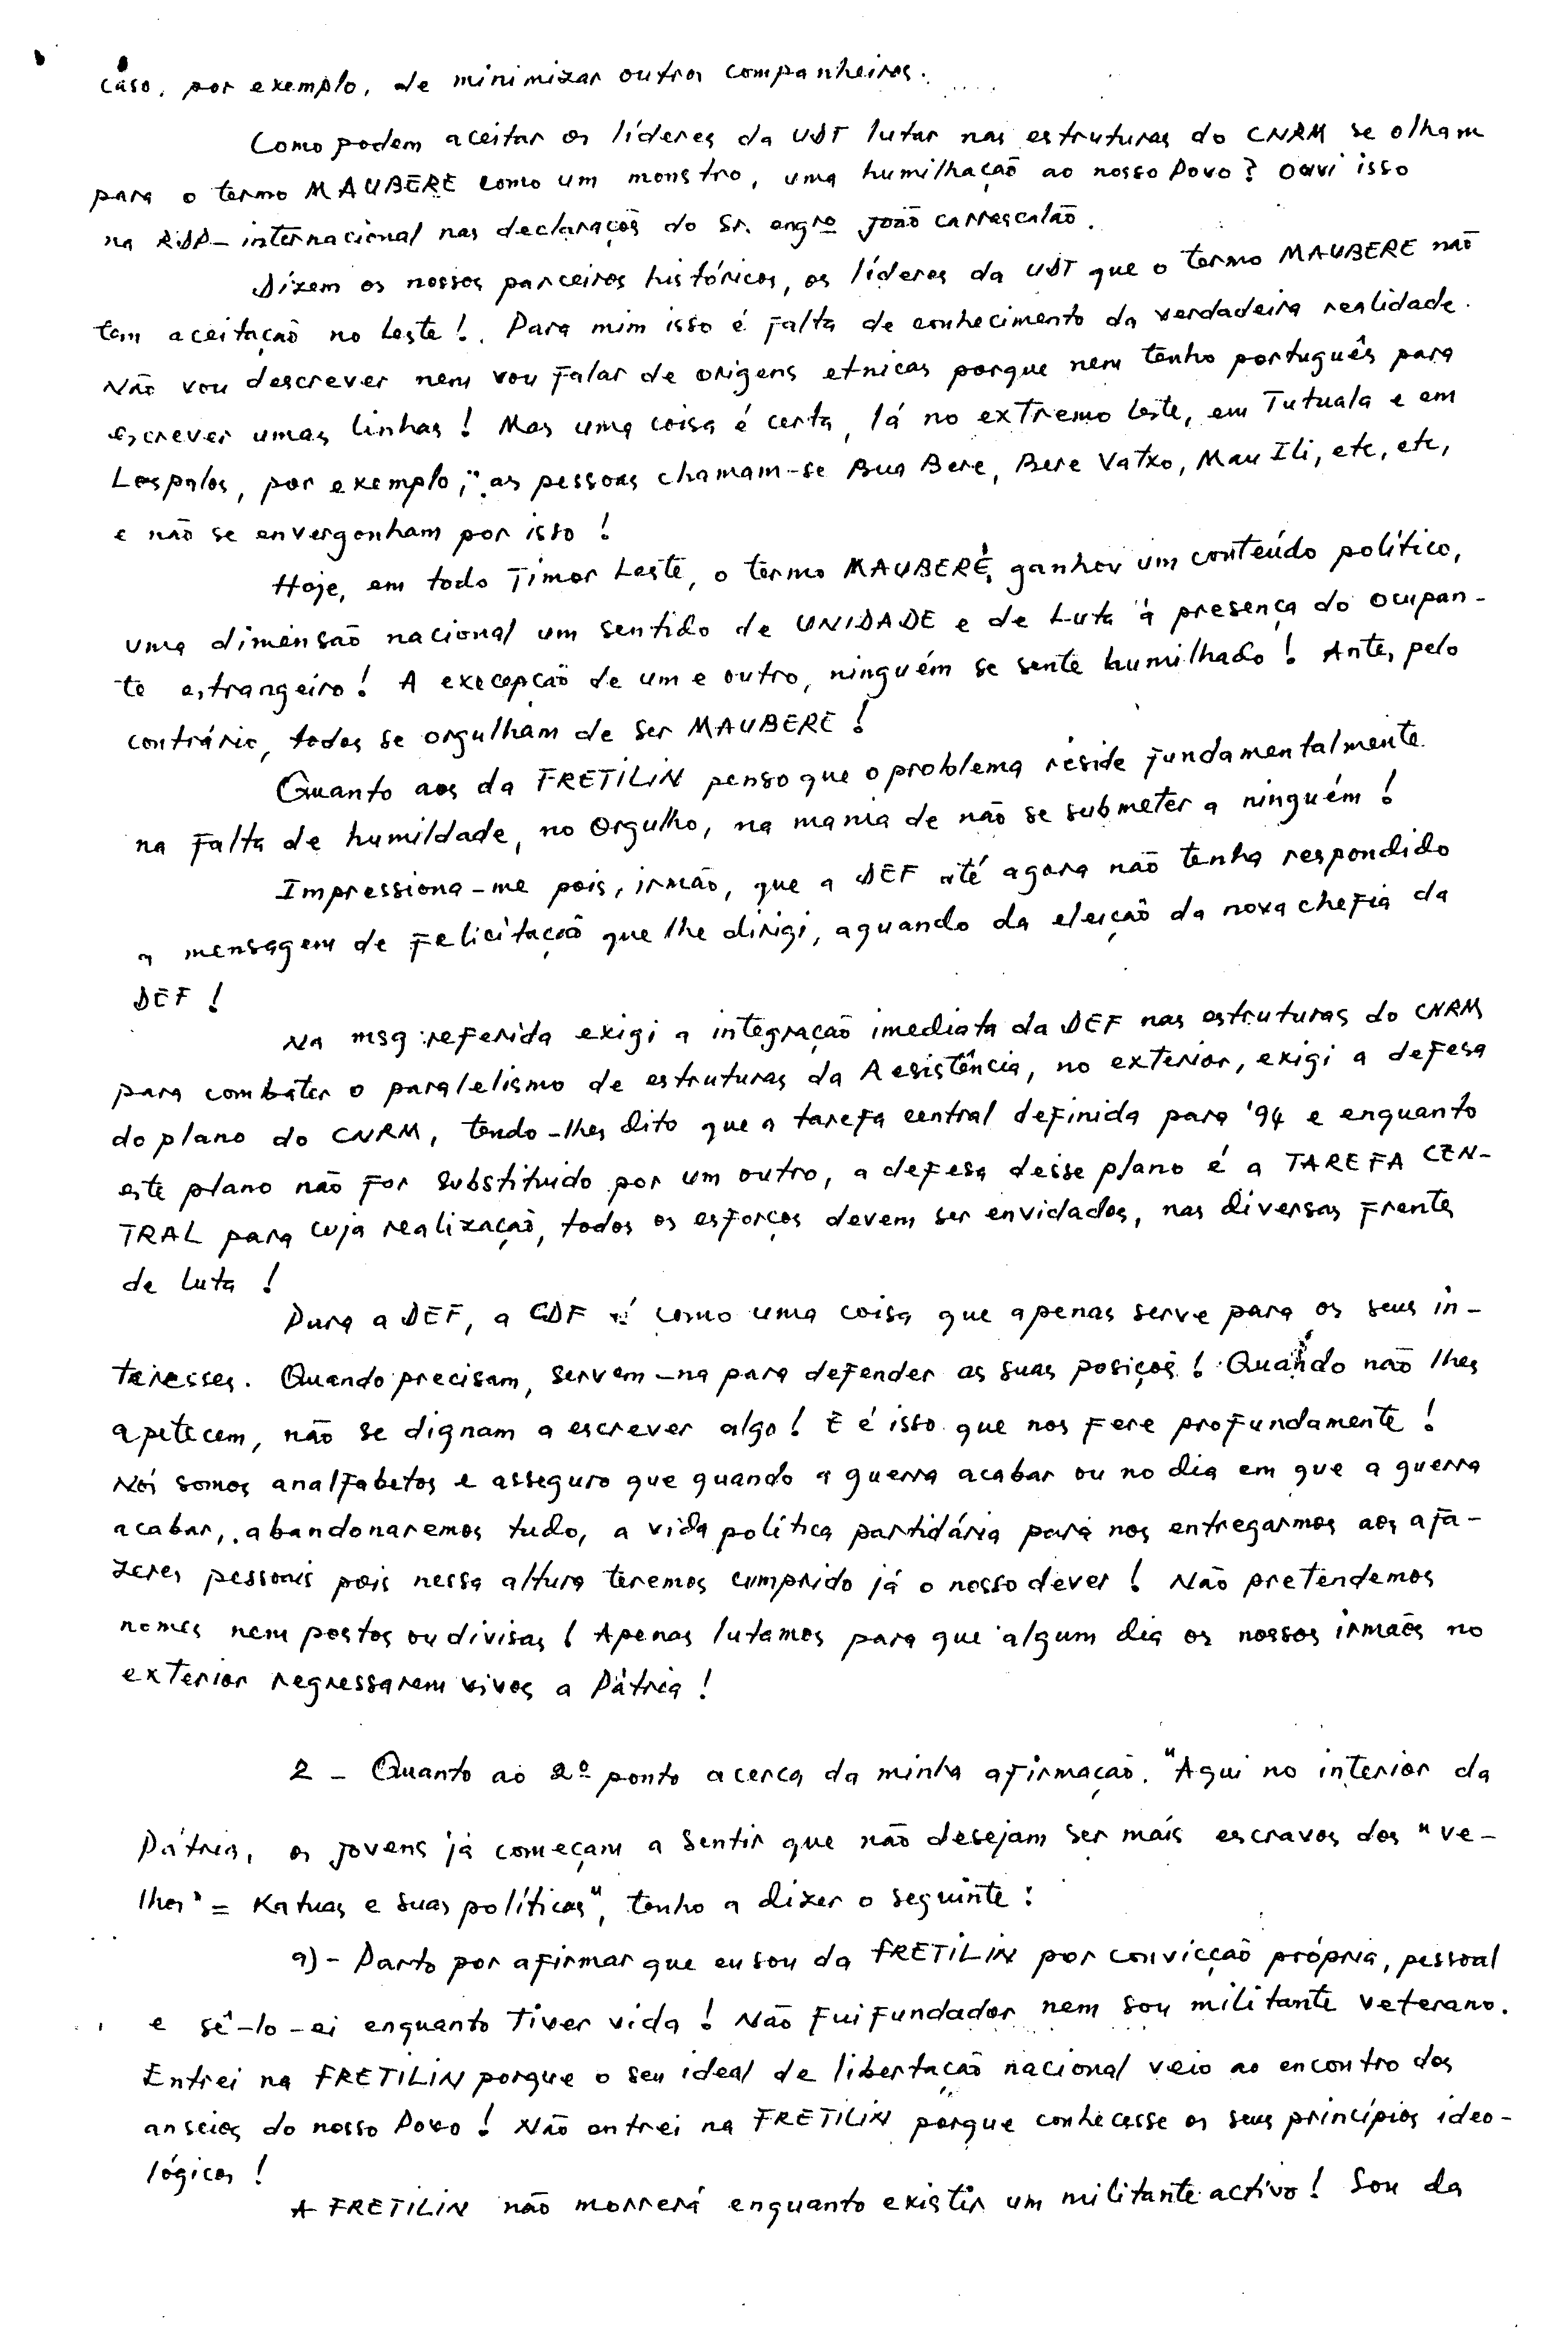 caso, por exemplo, de minimizar outros companheiros.....
Como podem aceitar os líderes da UDT lutar nas estruturas do CNRM se olham
para o termo MAUBERE como um monstro, uma humilhação ao nosso Povo? Ouvi isso
na RDP-internacional nas declarações do Sr. engrº João Carrascalão.
Dizem os nossos parceiros históricos, os líderes da UDT que o termo MAUBERE não
tem aceitação no Leste!. Para mim isso é falta de conhecimento da verdadeira realidade.
Não vou descrever nem vou falar de origens etnicas porque nem tenho português para
escrever umas linhas! Mas uma coisa é certa, lá no extremo Leste, em Tutuala e em
Lospalos, por exemplo, as pessoas chamam-se Bua Bere, Bere Vatxo, Mau Ili, etc, etc,
e não se envergonham por isso!
Hoje, em todo Timor Leste, o termo MAUBERE, ganhou um conteúdo político,
uma dimensão nacional um sentido de UNIDADE e de Luta à presença do ocupan-
te estrangeiro! A execepção de um e outro, ninguém se sente humilhado! Antes pelo
contrário, todos se orgulham de ser MAUBERE!
Quanto aos da FRETILIN penso que o problema reside fundamentalmente
na falta de humildade, no Orgulho, na mania de não se submeter a ninguém!
Impressiona-me pois, irmão, que a DEF até agora não tenha respondido
a mensagem de felicitação que lhe dirigi, aquando da eleição da nova chefia da
DEF!
Na msg referida exigi a integração imediata da DEF nas estruturas do CNRM
para combater o paralelismo de estruturas da Resistência, no exterior, exigi a defesa
do plano do CNRM, tendo-lhes dito que a tarefa central definida para '94 e enquanto
este plano não for substituido por um outro, a defesa desse plano é a TAREFA CEN-
TRAL para cuja realização, todos os esforços devem ser envidados, nas diversas Frentes
de Luta!
Para a DEF, a CDF é como uma coisa que apenas serve para os seus in-
teresses. Quando precisam, servem-na para defender as suas posições! Quando não lhes
apetecem, não se dignam a escrever algo! E é isso que nos fere profundamente!
Nós somos analfabetos e asseguro que quando a guerra acabar ou no dia em que a guerra
acabar, abandonaremos tudo, a vida política partidária para nos entregarmos aos afa-
zeres pessoais pois nessa altura teremos cumprido já o nosso dever! Não pretendemos
nomes nem postos ou divisas! Apenas lutamos para que algum dia os nossos irmãos no
exterior regressarem vivos a Pátria!
2 - Quanto ao 2º ponto acerca da minha afirmação. "Aqui no interior da
Pátria, os jovens já começam a sentir que não desejam ser mais escravos dos "ve-
lhos" = Katuas e suas políticas", tenho a dizer o seguinte:
a) - Parto por afirmar que eu sou da FRETILIN por convicção própria, pessoal
e sê-lo-ei enquanto tiver vida! Não fui fundador nem sou militante veterano.
Entrei na FRETILIN porque o seu ideal de libertação nacional veio ao encontro dos
anseios do nosso Povo! Não entrei na FRETILIN porque conhecesse os seus princípios ideo-
lógicos!
A FRETILIN não morrerá enquanto existir um militante activo! Sou da